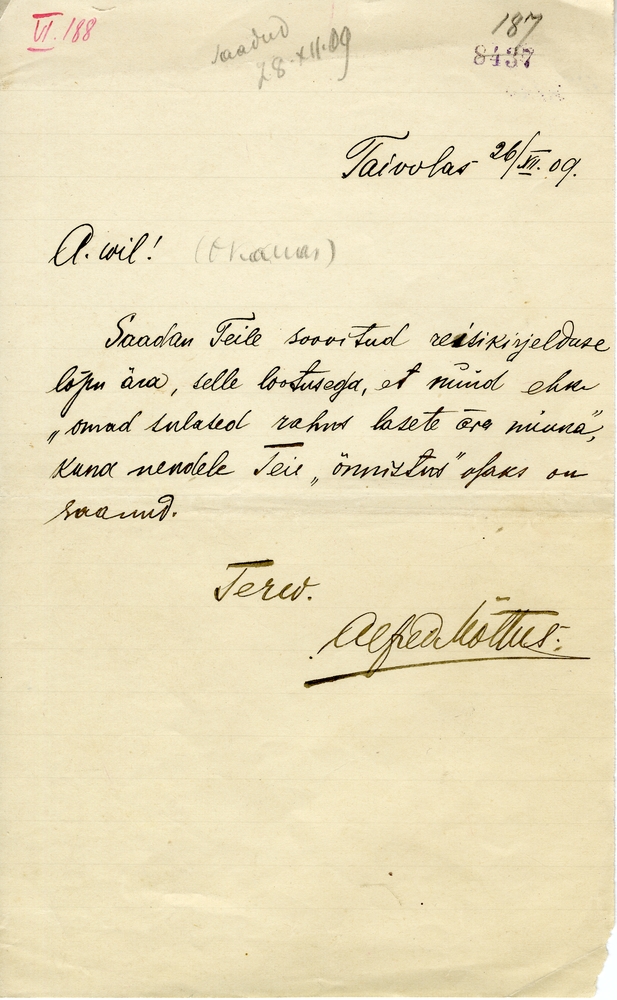 VI. 188
saadud
28.XII.09
187
8437
Taivolas 26/XII. 09.
A. wil!
Saadan Teile soovitud reisikirjelduse
lõpu ära, selle lootusega, et nüüd ehk
„omad sulased rahus lasete ära minna",
kuna nendele Teie „õnnistus" osaks on
saanud.
Terw.
Alfred Mõttus.